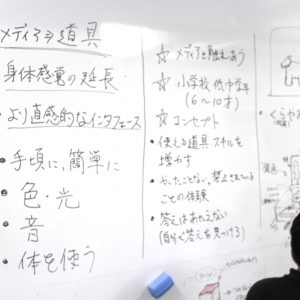 メディア⇒道具
身体感覚の延長
・より直感的なインタフェース
・手頃に,簡単に
・色・光
・音
・体を使う
☆ メディアと触れあう
☆ 小学校 低中学年
(6～10才)
☆ コンセプト
・使える道具 スキルを
増やす
・やったことない,禁止されている
ことの体験
・答えはあたえない
(自分で答えを見つける)